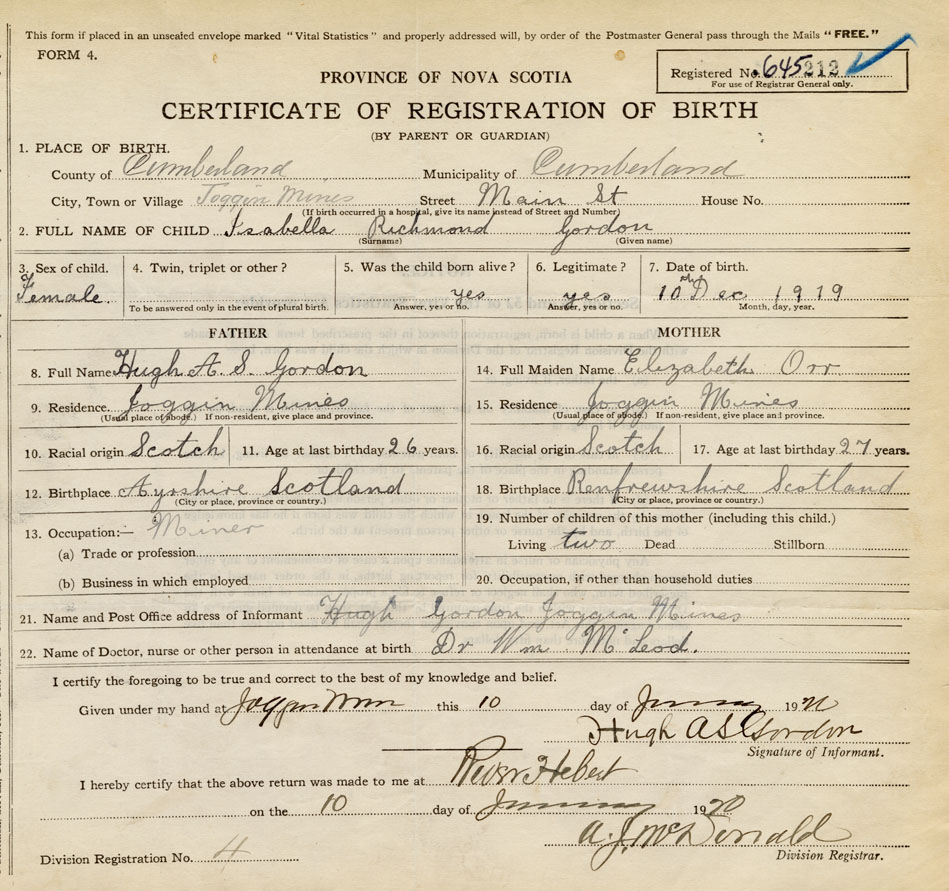 This form if placed in an unsealed envelope marked "Vital Statistics" and properly addressed will, by order of the Postmaster General pass through the Mails "FREE."
FORM 4.
Registered No. 645 212
For use of Registrar General only.
PROVINCE OF NOVA SCOTIA
CERTIFICATE OF REGISTRATION OF BIRTH
(BY PARENT OR GUARDIAN)
1. PLACE OF BIRTH.
County of Cumberland Municipality of Cumberland
City, Town or Village Joggin Mines Street Main St House No.
(If birth occurred in a hospital, give its name instead of Street and Number)
2. FULL NAME OF CHILD Isabella Richmond Gordon
(Surname) (Given name)
3. Sex of child. 4. Twin, triplet or other? 5. Was the child born alive? 6. Legitimate? 7. Date of birth.
Female. yes yes 10th Dec 1919
To be answered only in the event of plural birth. Answer, yes or no. Answer, yes or no. Month, day, year.
FATHER MOTHER
8. Full Name Hugh A. S. Gordon 14. Full Maiden Name Elizabeth Orr
9. Residence Joggin Mines 15. Residence Joggin Mines
(Usual place of abode.) If non-resident, give place and province. (Usual place of abode.) If non-resident, give place and province.
10. Racial origin Scotch 11. Age at last birthday 26 years. 16. Racial origin Scotch 17. Age at last birthday 27 years.
12. Birthplace Ayrshire Scotland 18. Birthplace Renfrewshire Scotland
(City or place, province or country.) (City or place, province or country.)
13. Occupation:— Miner 19. Number of children of this mother (including this child.)
(a) Trade or profession Living two Dead Stillborn
(b) Business in which employed 20. Occupation, if other than household duties
21. Name and Post Office address of Informant Hugh Gordon Joggin Mines
22. Name of Doctor, nurse or other person in attendance at birth Dr Wm McLeod.
I certify the foregoing to be true and correct to the best of my knowledge and belief.
Given under my hand at Joggin Mines this 10 day of January 1920
Hugh A S Gordon
Signature of Informant.
I hereby certify that the above return was made to me at River Hebert
on the 10 day of January 1920
A. J. McDonald
Division Registrar.
Division Registration No. 4